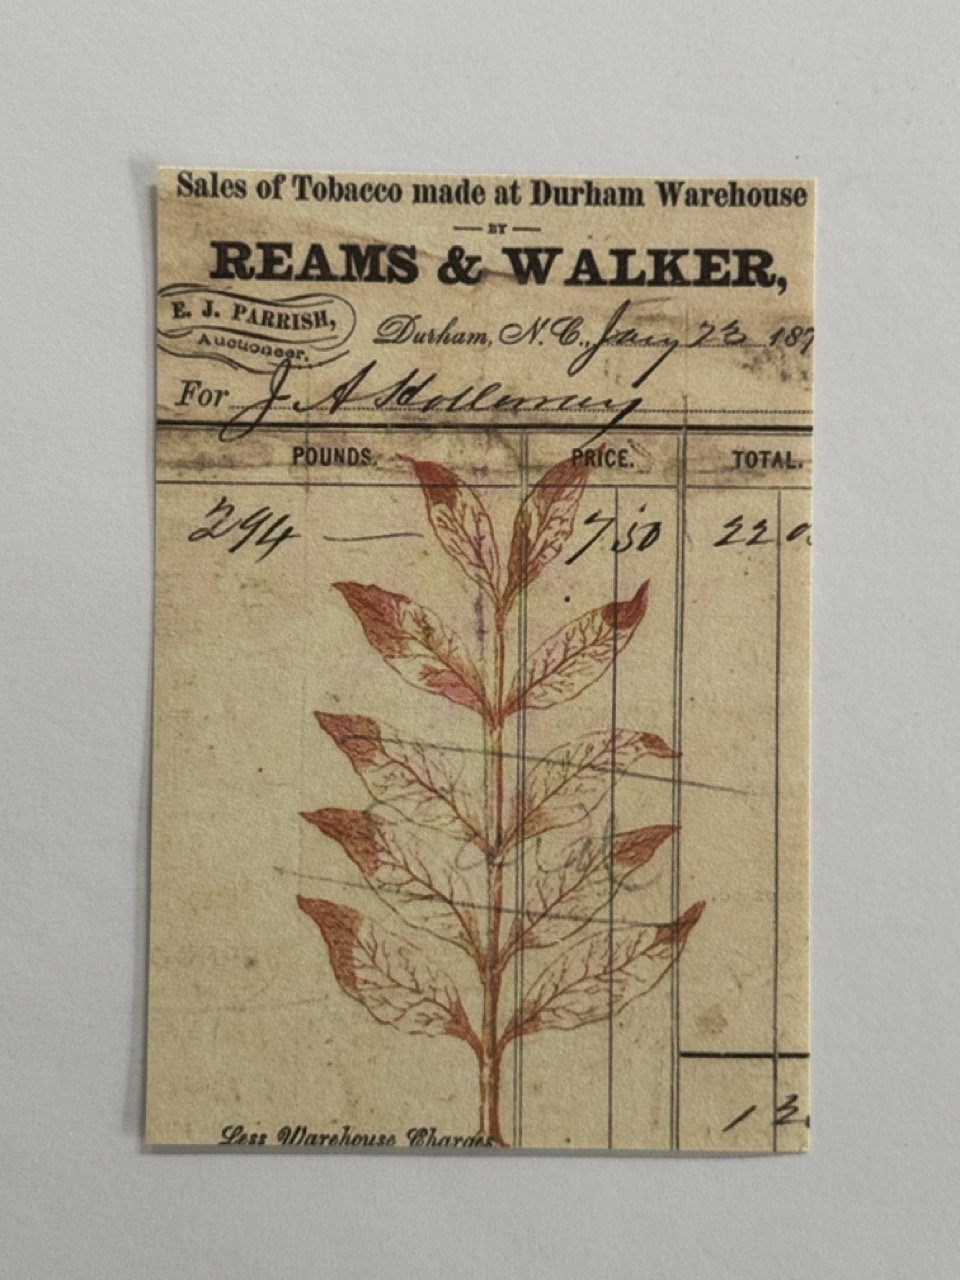 Sales of Tobacco made at Durham Warehouse
— BY —
REAMS & WALKER,
E. J. PARRISH,
Auctioneer.
Durham, N. C., Jany 23 187
For J A Holloway
POUNDS. PRICE. TOTAL.
294 — 7 50 22 0
1 3
Less Warehouse Charges